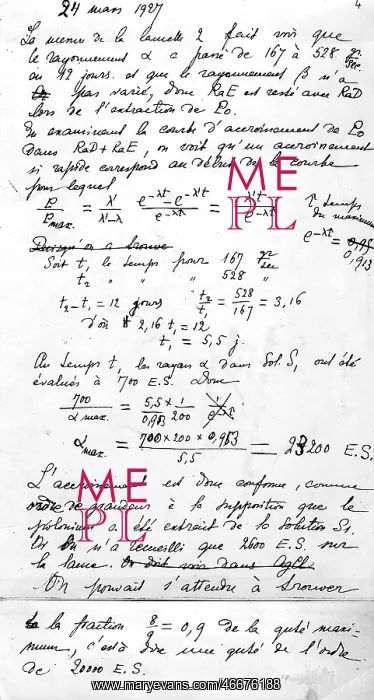 24 mars 1927
4
La mesure de la lamelle 2 fait voir que
le rayonnement α a passé de 167 à 528 gr/sec
en 12 jours. et que le rayonnement β n'a
pas varié, donc RaE est resté avec RaD
lors de l'extraction de Po.
En examinant la courbe d'accroissement de Po
dans RaD + RaE, on voit qu'un accroissement
si rapide correspond au début de la courbe
pour lequel
P/Pmax. = λ'/λ'-λ e^-λt - e^-λ't / e^-λt =
t, temps
du maximum
e^-λt = 0,95
0,913
Puisqu'on a trouvé
Soit t₁ le temps pour 167 gr/sec
t₂ " " " 528 "
t₂ - t₁ = 12 jours t₂/t₁ = 528/167 = 3,16
d'où 2,16 t₁ = 12
t₁ = 5,5 j.
Au temps t₁ les rayons α dans Sol. S₁ ont été
évalués à 700 E.S. Donc
700/α max. = 5,5 × 1 / 0,913 200
α max. = 700 × 200 × 0,913 / 5,5 = 23200 E.S.
L'accroissement est donc conforme, comme
ordre de grandeur à la supposition que le
polonium a été extrait de la solution S₁.
On n'a recueilli que 2600 E.S. sur
la lame. On doit voir dans
On pouvait s'attendre à trouver
la fraction 8/9 = 0,9 de la qté maxi-
mum, c'est à dire une qté de l'ordre
de 20000 E.S.
MEPL
MEPL
www.maryevans.com/46676188